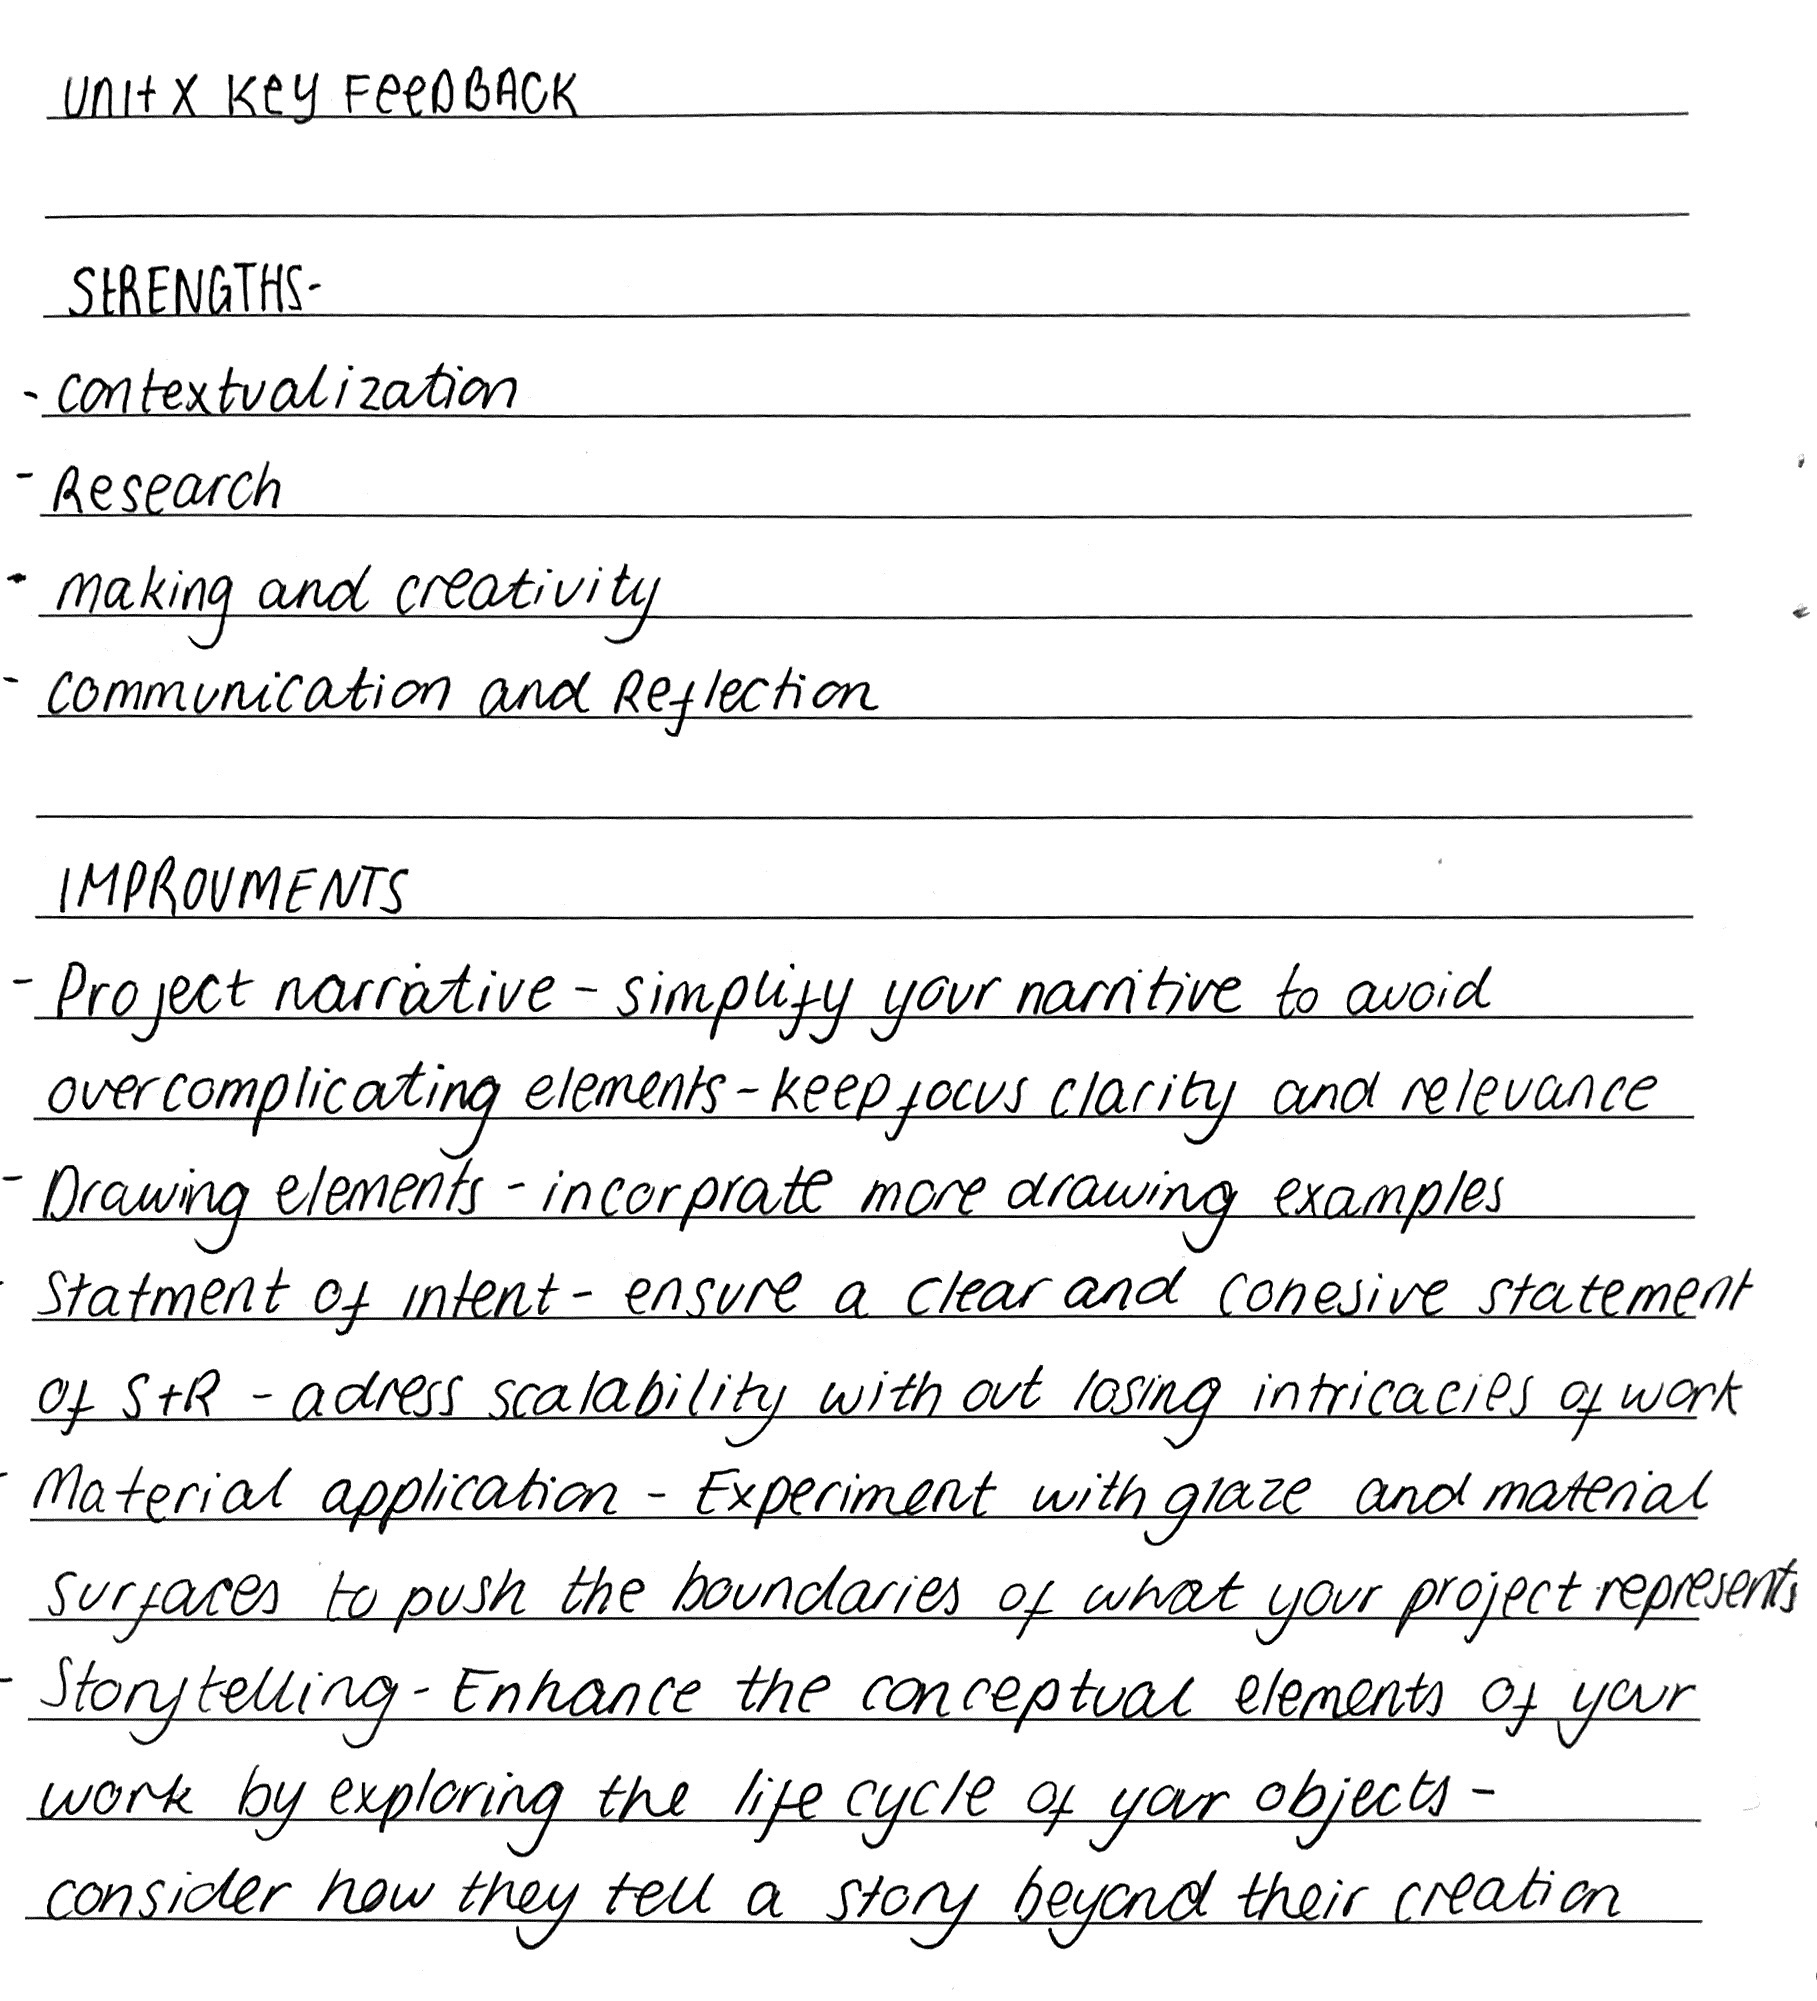 Unit X Key FeeDBACK
STRENGTHS-
- contextualization
- Research
- making and creativity
- communication and Reflection
IMPROVMENTS
- Project narrative - simplify your narritive to avoid
overcomplicating elements - keep focus clarity and relevance
- Drawing elements - incorprate more drawing examples
- Statment of intent - ensure a clear and cohesive statement
of S+R - adress scalability with out losing intricacies of work
- Material application - Experiment with glaze and material
surfaces to push the boundaries of what your project represents
- Storytelling - Enhance the conceptual elements of your
work by exploring the life cycle of your objects -
consider how they tell a story beyond their creation